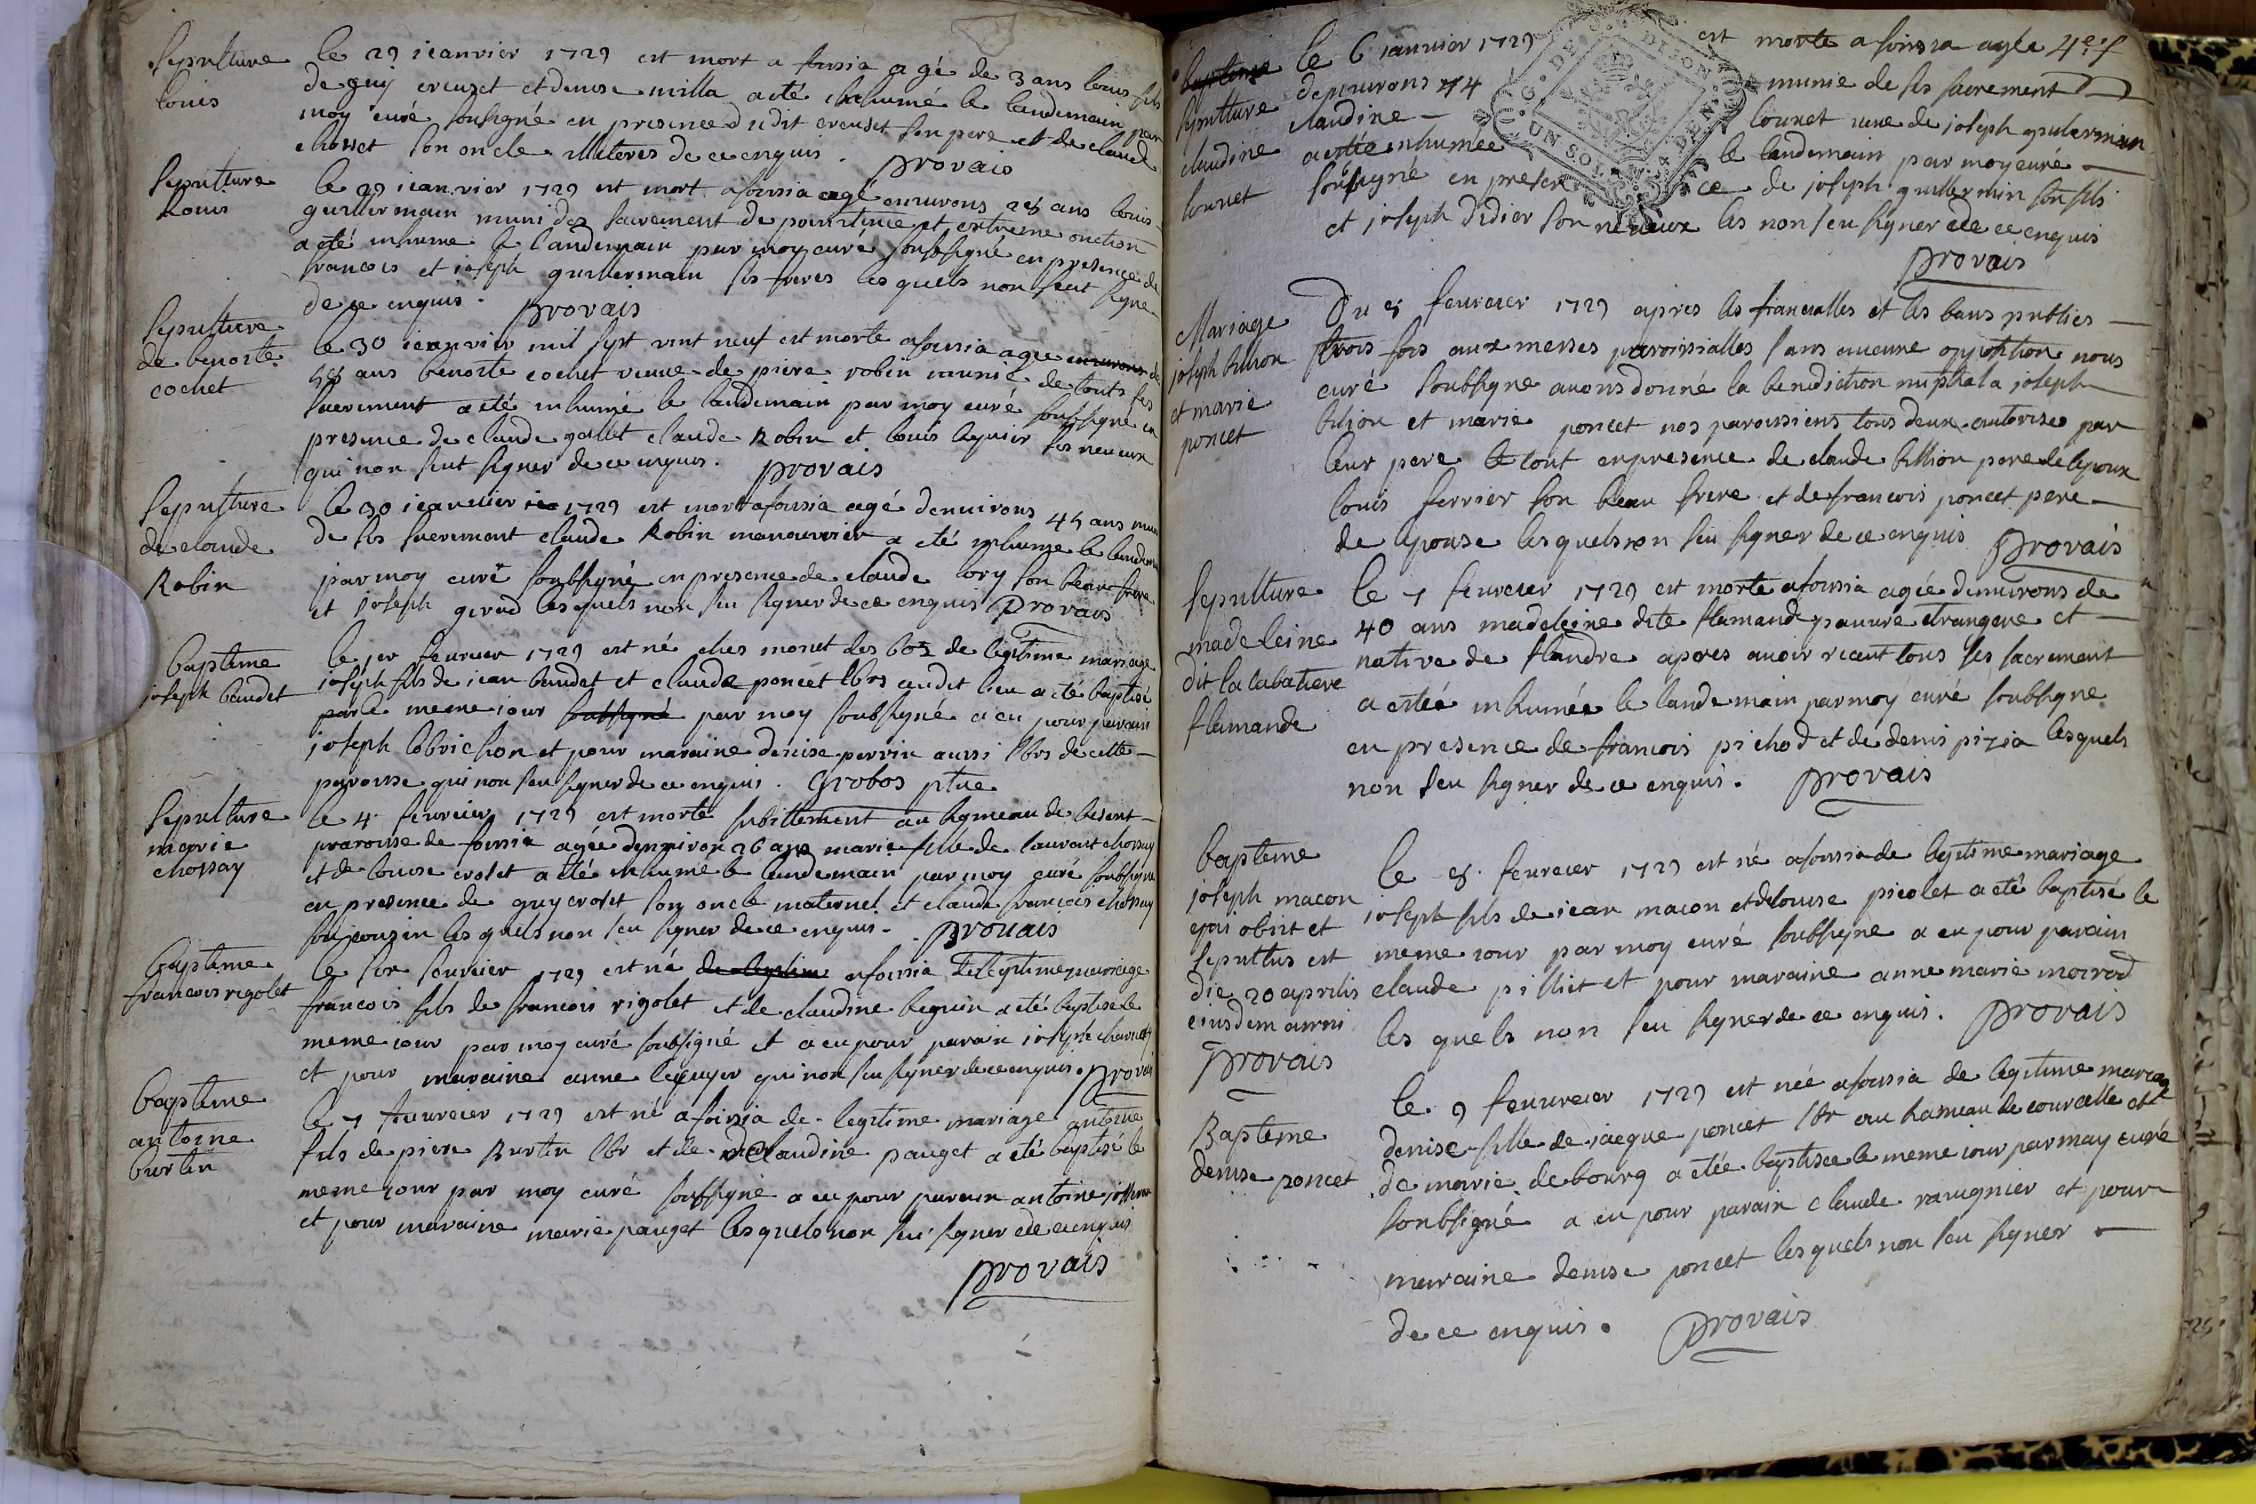 Sepulture
louis
le 29 ieanvier 1729 est mort a foissia agé de 3 ans louis fils
de guy creuset et denise milla a eté inhumé le landemain par
moy curé soubsigné en presence dudit creuset son pere et de claud
son oncle illiteres de ce enquis. provais
Sepulture
Louis
le 29 ieanvier 1729 est mort a foissia agé enuirons 28 ans louis
guillermain muni des sacrement de poenitence et extreme onction
a eté inhume le landemain par moy curé soubsigné en presence de
francois et ioseph guillermain ses freres lesquels non seut signe
de ce enquis. provais
Sepulture
de benoite
cochet
le 30 ieanvier mil sept vint neuf est morte a foissia agee enuirons de
58 ans benoite cochet veuve de piere robin munie de touts ses
sacrement a eté inhumé le landemain par moy curé soubsigné en
presence de claude gallet claude Robin et louis ses neueux
qui non seut signer de ce enquis. provais
Sepulture
de claude
Robin
le 30 ieanuier 1729 est mort a foissia agé denuirons 45 ans muni
de ses sacrement claude Robin manouvrier a eté inhume le landem
par moy curé soubsigné en presence de claude lory son beau frere
et joseph girod lesquels non seu signer de ce enquis provais
bapteme
joseph baudet
le 1er feurier 1729 est né ches monet des bois de legitime mariage
joseph fils de iean baudet et claude poncet lbrs audit lieu a eté baptisé
par le meme iour soubsigné par moy soubsigné a eu pour parain
joseph lobrichon et pour maraine denise perrin aussi lbrs de cette
paroisse qui non seu signer de ce enquis. Grobos ptre
Sepulture
marie
chossay
le 4 feuruier 1729 est morte subittement au hameau de
paroisse de foissia agée denuiron 26 ans marie fille de laurent chossay
et de louise crolet a eté inhumé le landemain par moy curé soubsigne
en presence de guy crolet son oncle maternel et claude francois chossay
son cousin lesquels non seu signer de ce enquis. provais
bapteme
francois rigolet
le six feuruier 1729 est né de legitim a foissia de legitime mariage
francois fils de francois rigolet et de claudine beguin a eté baptisé le
meme iour par moy curé soubsigné et a eu pour parain ioseph
et pour maraine anne lequyer qui non seu signer de ce enquis. provais
bapteme
antoine
burtin
le 7 feuureier 1729 est né a foissia de legitime mariage antoine
fils de piere Burtin lbr et de claudine pauget a eté baptisé le
meme iour par moy curé soubsigné a eu pour parain antoine
et pour maraine marie pauget lesquels non seu signer de ce enquis
provais
bapteme
sepulture
claudine
lounet
G. DE DIJON
UN SOL 4 DEN
le 6 ianuier 1729 est morte a foissia agée
denuirons 74 munie de ses sacrement
claudine lounet veue de joseph guilermin
a estée inhumée le landemain par moy curé
soubsigné en presence de joseph guillermin son fils
et joseph didier son neueux les non seu signer de ce enquis
provais
Mariage
joseph billion
et marie
poncet
Du 8 feureier 1729 apres les fiancialles et les bans publies
trois fois aux messes paroissialles sans aucune opposition nous
curé soubsigne auons donné la benediction nuptiala joseph
bilion et marie poncet nos paroissiens tous deux autorise par
leur pere le tout en presence de claude billion pere de lepoux
louis ferrier son beau frere et de francois poncet pere
de lepouse lesquels non seu signer de ce enquis provais
Sepulture
madeleine
dit la cabatiere
flamande
le 7 feureier 1729 est morte a foissia agée denuirons de
40 ans madeleine dite flamand pauure etrangere et
native de flandre apres auoir receut tous ses sacrement
a estée inhumée le landemain par moy curé soubsigne
en presence de francois pichod et de denis pizia lesquels
non seu signer de ce enquis. provais
bapteme
joseph macon
qui obiit et
sepultus est
die 20 aprilis
eiusdem anni
provais
le 8 feureier 1729 est né a foissia de legitime mariage
joseph fils de iean macon et de louise picolet a eté baptisé le
meme iour par moy curé soubsigne a eu pour parain
claude pilliet et pour maraine anne marie moirod
les quels non seu signer de ce enquis. provais
Bapteme
denise poncet
le 9 feuureier 1729 est née a foissia de legitime mariage
denise fille de iaeque poncet lbr au hameau de courcelle et
de marie debourg a etée baptisee le meme iour par moy curé
soubsigné a eu pour parain claude raugnier et pour
maraine denise poncet lesquels non seu signer
de ce enquis. provais